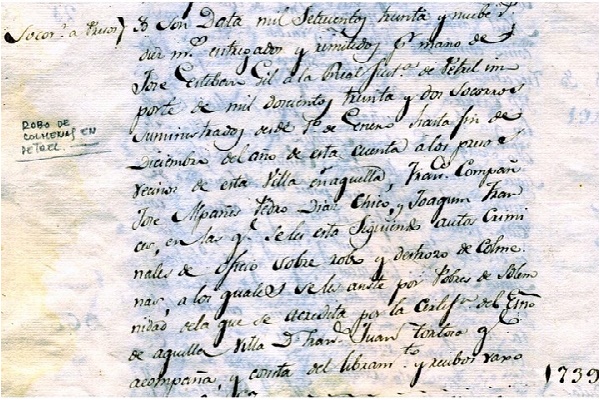 Socorˢ a Presos
ROBO DE
COLMENAS EN
PETREL
Son Data mil Setecientos treinta y nueve rˢ
diez mˢ entregados y remitidos pʳ mano de
Jose Esteban Gil a la Real Justª de Petrel im
porte de mil docientos treinta y dos socorros
suministrados desde 1º de Enero hasta fin de
Diciembre del año de esta cuenta a los presos
vecinos de esta Villa en aquella, Franᶜº Compañ
Jose Alpañes Pedro Diaz Chico, y Joaquin Fran
ces, en las qᵉ se les esta siguiendo autos Crimi
nales de oficio sobre robo y destrozo de Colme
nas, a los quales se les asiste por Pobres de Solem
nidad de la que se acredita por la Certifⁿ del Essⁿº
de aquella Villa Dⁿ Franᶜº Juan Tortosa qᵉ
acompaña, y consta del libramᵗº y recibos vaxo
1739